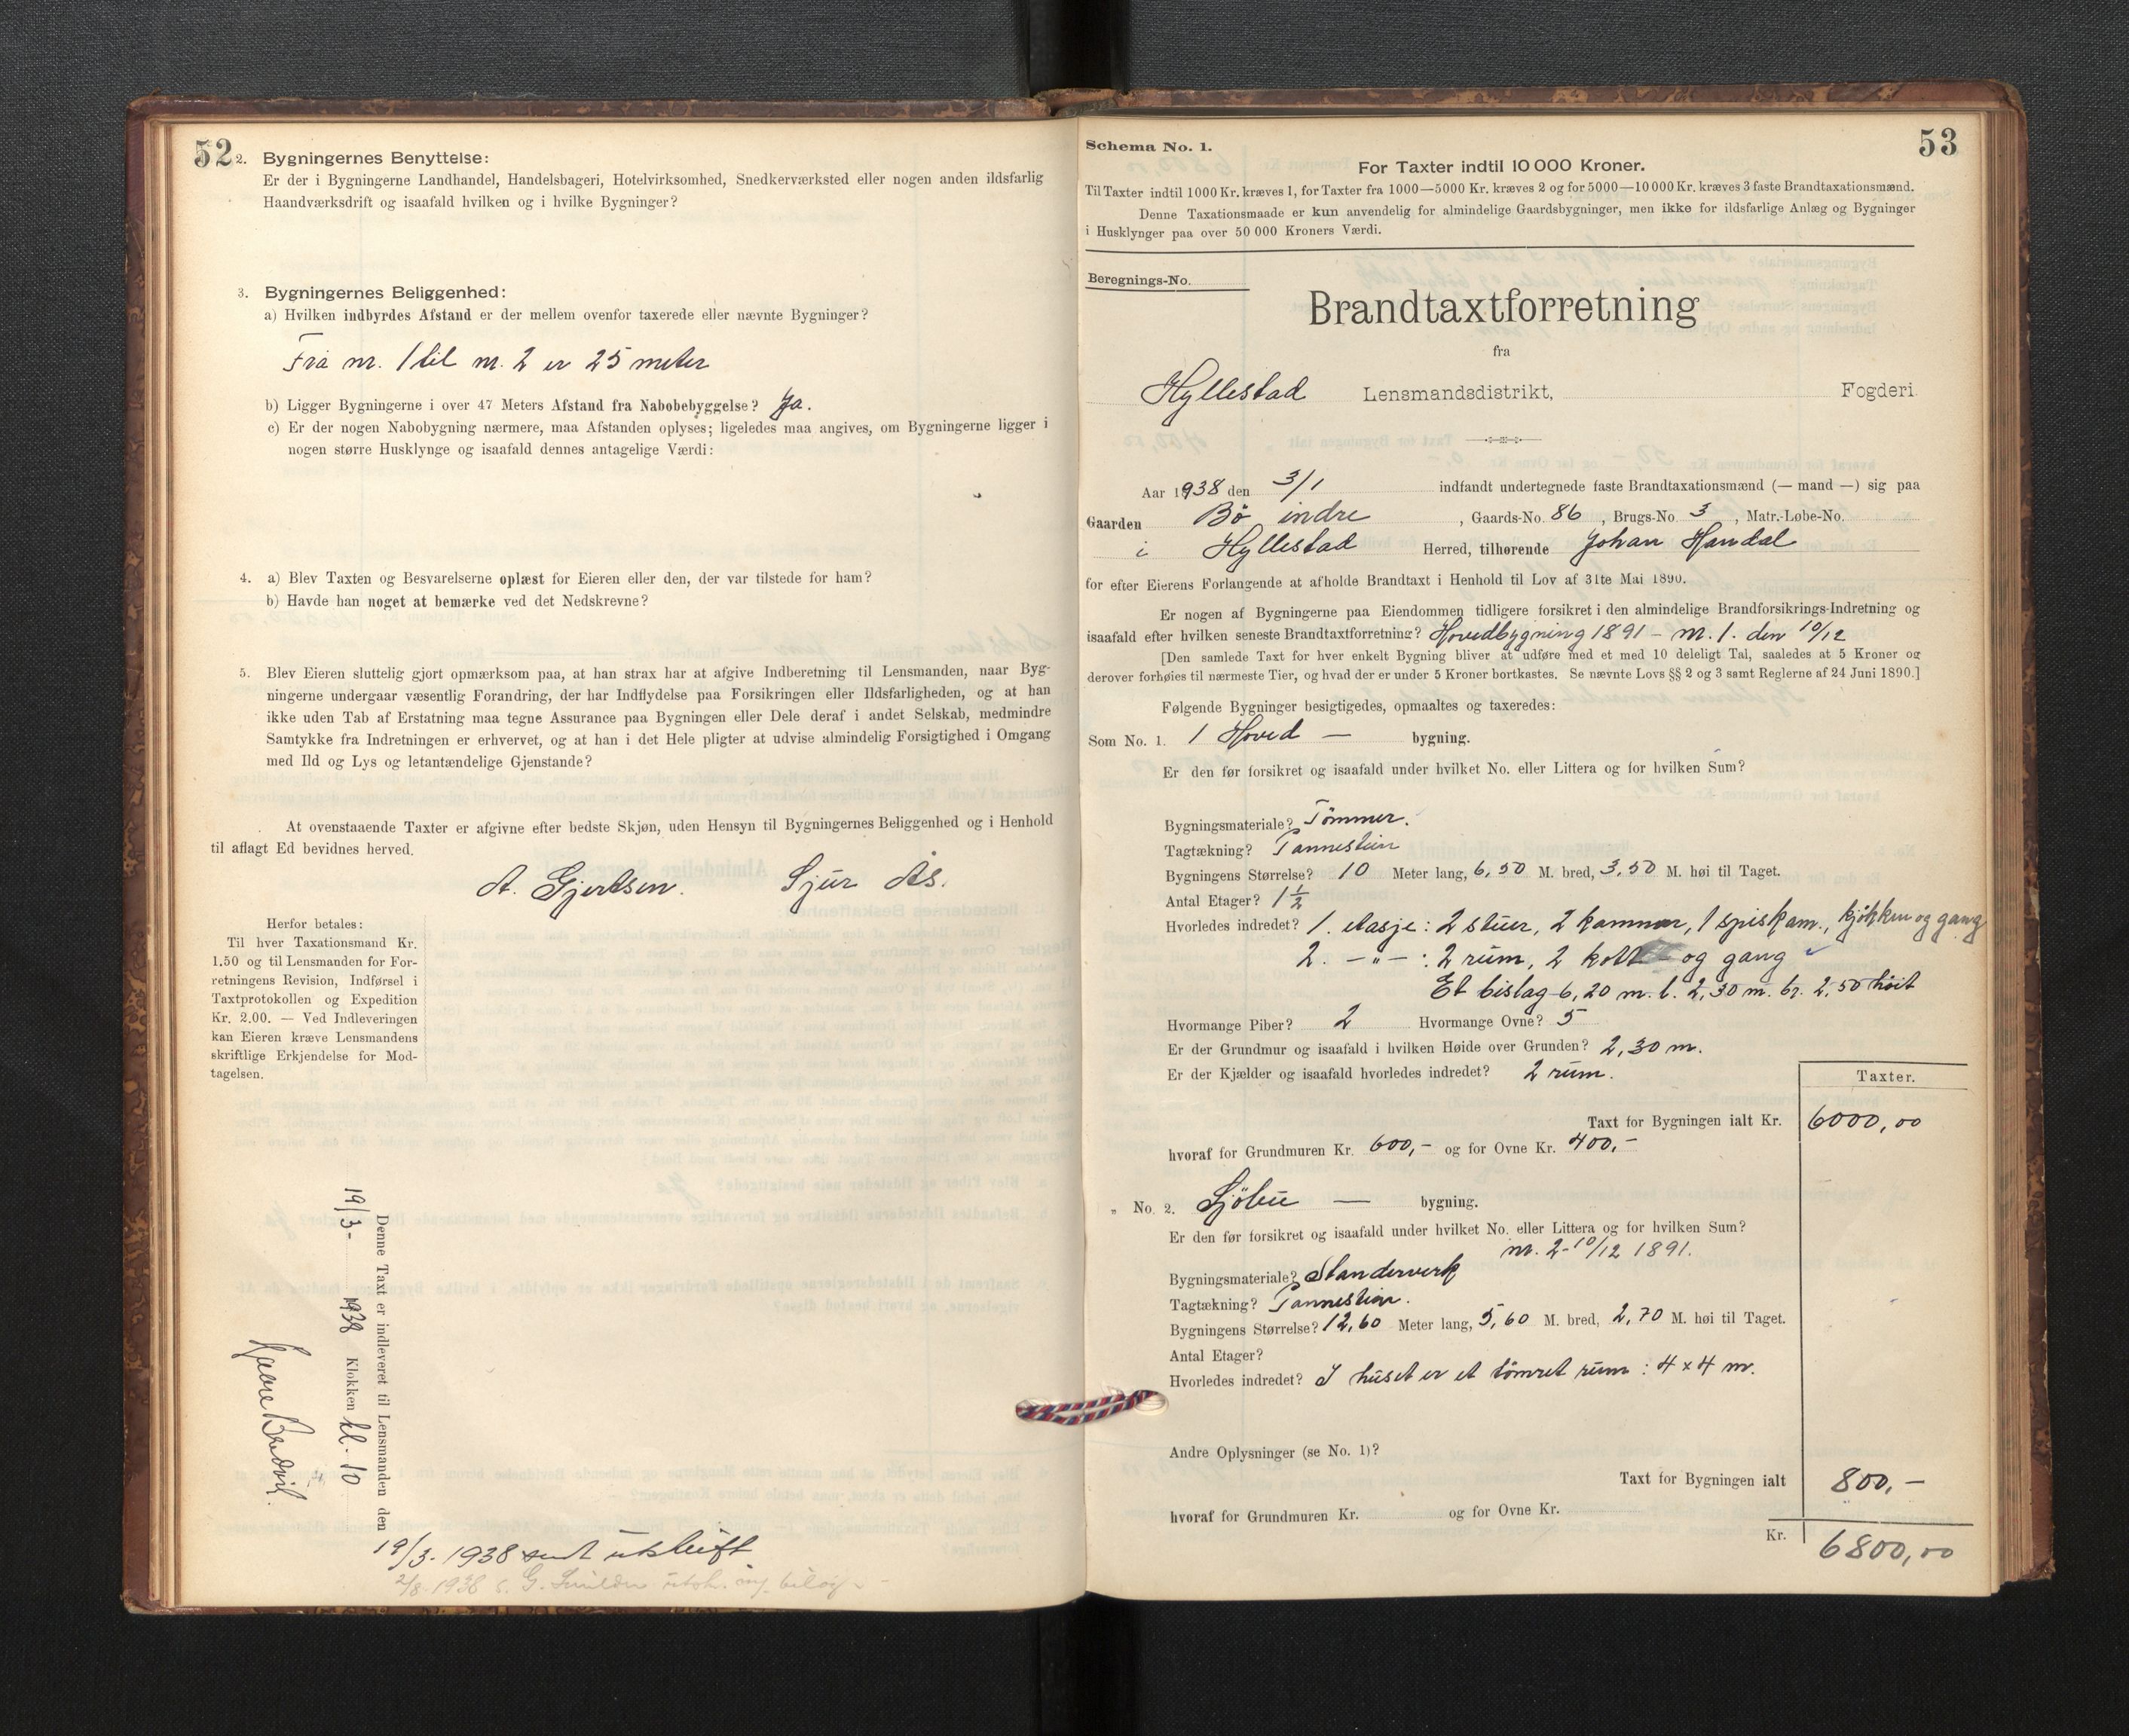 52
2. Bygningernes Benyttelse:
Er der i Bygningerne Landhandel, Handelsbageri, Hotelvirksomhed, Snedkerværksted eller nogen anden ildsfarlig
Haandværksdrift og isaafald hvilken og i hvilke Bygninger?
3. Bygningernes Beliggenhed:
a) Hvilken indbyrdes Afstand er der mellem ovenfor taxerede eller nævnte Bygninger?
Fra nr. 1 til nr. 2 er 25 meter
b) Ligger Bygningerne i over 47 Meters Afstand fra Nabobebyggelse? Ja.
c) Er der nogen Nabobygning nærmere, maa Afstanden oplyses; ligeledes maa angives, om Bygningerne ligger i
nogen større Husklynge og isaafald dennes antagelige Værdi:
4. a) Blev Taxten og Besvarelserne oplæst for Eieren eller den, der var tilstede for ham?
b) Havde han noget at bemærke ved det Nedskrevne?
5. Blev Eieren sluttelig gjort opmærksom paa, at han strax har at afgive Indberetning til Lensmanden, naar Byg-
ningerne undergaar væsentlig Forandring, der har Indflydelse paa Forsikringen eller Ildsfarligheden, og at han
ikke uden Tab af Erstatning maa tegne Assurance paa Bygningen eller Dele deraf i andet Selskab, medmindre
Samtykke fra Indretningen er erhvervet, og at han i det Hele pligter at udvise almindelig Forsigtighed i Omgang
med Ild og Lys og letantændelige Gjenstande?
At ovenstaaende Taxter er afgivne efter bedste Skjøn, uden Hensyn til Bygningernes Beliggenhed og i Henhold
til aflagt Ed bevidnes herved.
A. Gjertsen. Sjur Ås.
Herfor betales:
Til hver Taxationsmand Kr.
1.50 og til Lensmanden for For-
retningens Revision, Indførsel i
Taxtprotokollen og Expedition
Kr. 2.00. — Ved Indleveringen
kan Eieren kræve Lensmandens
skriftlige Erkjendelse for Mod-
tagelsen.
Denne Taxt er indleveret til Lensmanden den
19/3- 1938 Klokken kl. 10
19/3- 1938 sendt utskrift
2/8-1938 s. G.
53
Schema No. 1.
For Taxter indtil 10 000 Kroner.
Til Taxter indtil 1000 Kr. kræves 1, for Taxter fra 1000—5000 Kr. kræves 2 og for 5000—10 000 Kr. kræves 3 faste Brandtaxationsmænd.
Denne Taxationsmaade er kun anvendelig for almindelige Gaardsbygninger, men ikke for ildsfarlige Anlæg og Bygninger
i Husklynger paa over 50 000 Kroners Værdi.
Beregnings-No.
Brandtaxtforretning
fra
Hyllestad Lensmandsdistrikt, Fogderi
Aar 1938 den 3/1 indfandt undertegnede faste Brandtaxationsmænd (— mand —) sig paa
Gaarden Bø indre, Gaards-No. 86, Brugs-No 3, Matr.-Løbe-No.
i Hyllestad Herred, tilhørende Johan Handal
for efter Eierens Forlangende at afholde Brandtaxt i Henhold til Lov af 31te Mai 1890.
Er nogen af Bygningerne paa Eiendommen tidligere forsikret i den almindelige Brandforsikrings-Indretning og
isaafald efter hvilken seneste Brandtaxtforretning? Hovedbygning 1891 - nr. 1. den 10/12
[Den samlede Taxt for hver enkelt Bygning bliver at udføre med et med 10 deleligt Tal, saaledes at 5 Kroner og
derover forhøies til nærmeste Tier, og hvad der er under 5 Kroner bortkastes. Se nævnte Lovs §§ 2 og 3 samt Reglerne af 24 Juni 1890.]
Følgende Bygninger besigtigedes, opmaaltes og taxeredes:
Som No. 1. 1 Hoved — bygning.
Er den før forsikret og isaafald under hvilket No. eller Littera og for hvilken Sum?
Bygningsmateriale? Tömmer.
Tagtækning? Pannestein
Bygningens Størrelse? 10 Meter lang, 6,50 M. bred, 3,50 M. høi til Taget.
Antal Etager? 1 1/2
Hvorledes indredet? 1. etasje: 2 stuer, 2 kammer, 1 spiskam., kjøkken og gang
2. -"- : 2 rum, 2 kott og gang
Et bislag 6,20 m. l. 2,30 m. br. 2,50 höit
Hvormange Piber? 2 Hvormange Ovne? 5
Er der Grundmur og isaafald i hvilken Høide over Grunden? 2,30 m.
Er der Kjælder og isaafald hvorledes indredet? 2 rum.
Taxter.
Taxt for Bygningen ialt Kr. 6000,00
hvoraf for Grundmuren Kr. 600,- og for Ovne Kr. 400,-
„ No. 2. Sjöbu — bygning.
Er den før forsikret og isaafald under hvilket No. eller Littera og for hvilken Sum?
nr. 2-10/12 1891.
Bygningsmateriale? Standerverk
Tagtækning? Pannestein.
Bygningens Størrelse? 12,60 Meter lang, 5,60 M. bred, 2,70 M. høi til Taget.
Antal Etager?
Hvorledes indredet? I huset er et tömret rum: 4 x 4 m.
Andre Oplysninger (se No. 1)?
Taxt for Bygningen ialt 800,-
hvoraf for Grundmuren Kr. og for Ovne Kr.
Kr. 6800,00